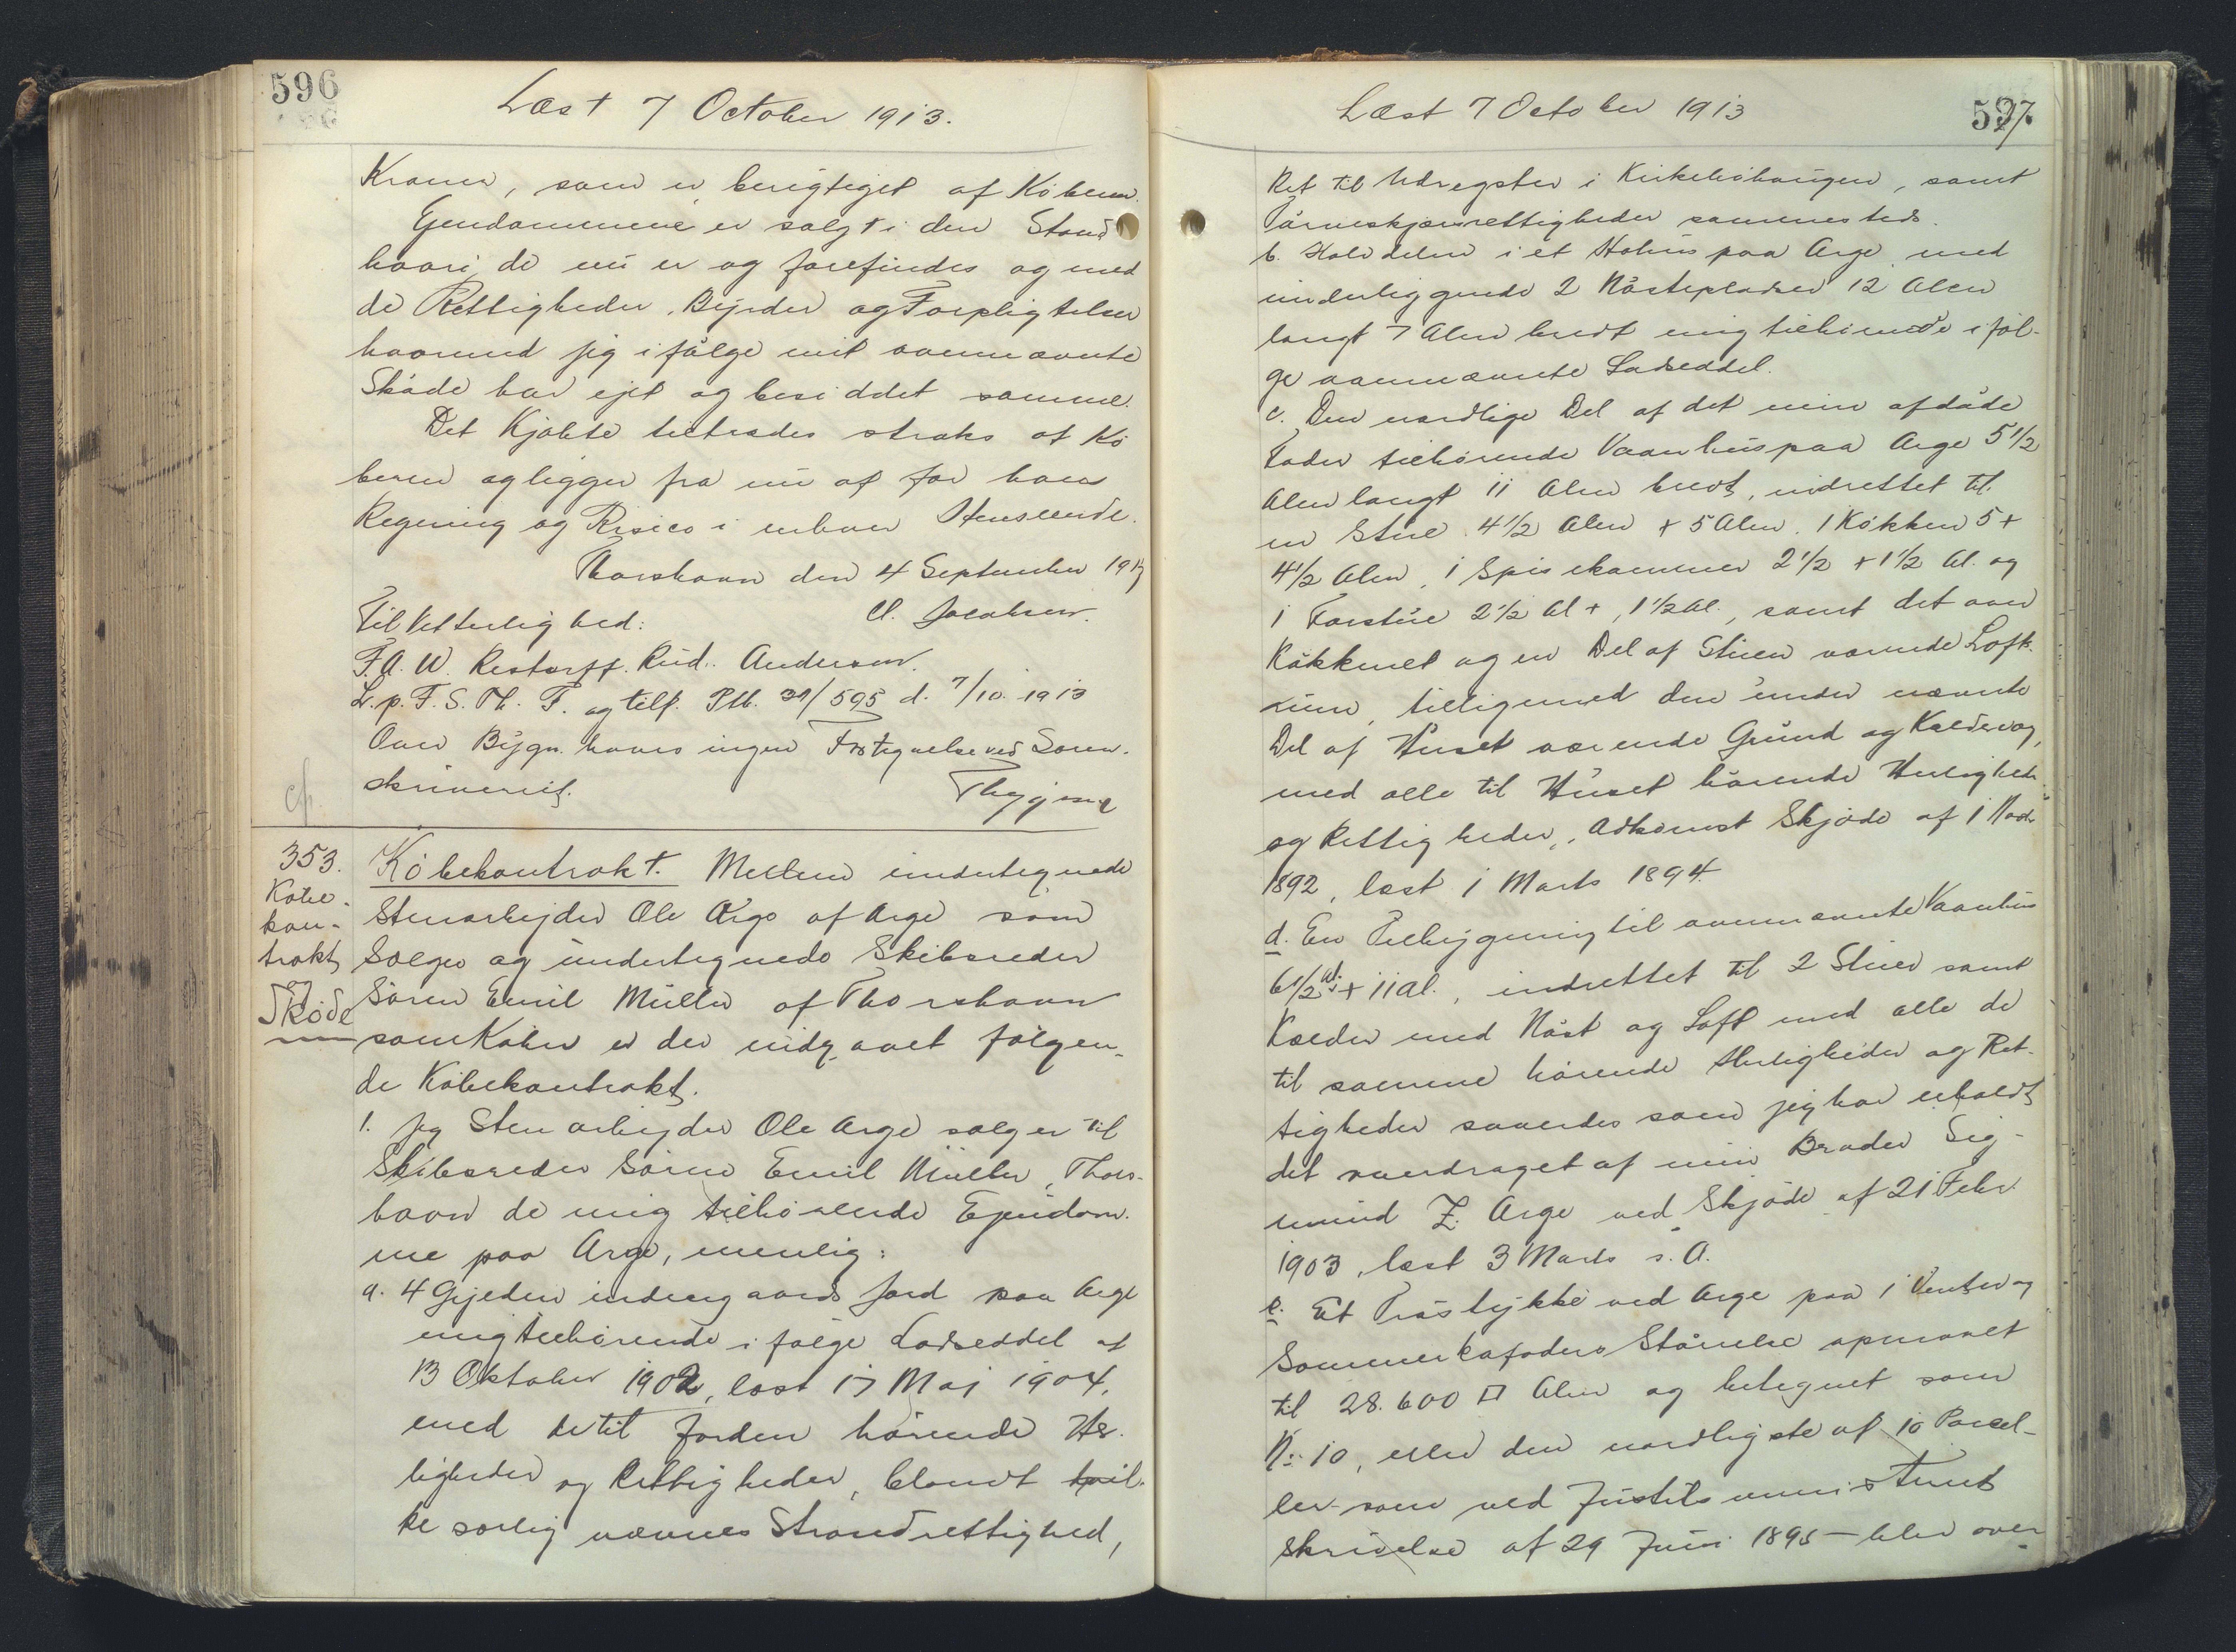 596
Læst 7 October 1913.
Kroner, som er berigtiget af Køberen.
Ejendommene er solgt i den Stand
hvori de nu er og forefindes og med
de Rettigheder, Byrder og Forpligtelser
hvormed jeg ifølge mit ovennævnte
Skøde har ejet og besiddet samme.
Det Kjøbte tiltrædes straks af Kø
beren og ligger fra nu af for hans
Regning og Risico i enhver Henseende.
Thorshavn den 4 September 1913
Til Vitterlighed: Cl. Jacobsen.
F. A. W. Restorff. Rud. Andersen.
L. p. F. S. Th. F. og tilf. Ptb. 31/595 d. 7/10. 1913
Over Bygn. haves ingen Fortegnelse ved Soren-
skriveriet. Thygjesen
cfr.
353.
Købe-
kon-
trakt
og
Skøde
Købekontrakt. Mellem undertegnede
Stenarbejder Ole Arge af Arge som
Sælger og undertegnede Skibsreder
Sören Emil Müller af Thorshavn
som Køber er der indgaaet følgen-
de Købekontrakt.
1. Jeg Stenarbejder Ole Arge sælger til
Skibsreder Sören Emil Müller, Thors-
havn de mig tilhörende Ejendom-
me paa Arge, nemlig:
a. 4 Gyjeden indengaards Jord paa Arge
mig tilhørende i følge Lodseddel af
13 Oktober 1902, læst 17 Maj 1904,
med de til Jorden hørende Her-
ligheder og Rettigheder, blandt hvil-
ke særlig nævnes Strandrettighed,
597.
Læst 7 October 1913
Ret til Udregster i Kirkebøhaugen, samt
Törveskjærsrettigheder sammesteds.
b. Halvdelen i et Hohus paa Arge med
underliggende 2 Nöstepladser 12 Alen
langt 7 Alen bredt mig tilhørende iföl-
ge ovennævnte Lodseddel.
c. Den nordlige Del af det min afdöde
Fader tilhørende Vaanhus paa Arge 5 1/2
Alen langt 11 Alen bredt, indrettet til
en Stue 4 1/2 Alen + 5 Alen, 1 Køkken 5 +
4 1/2 Alen, 1 Spisekammer 2 1/2 + 1 1/2 Al. og
1 Forstue 2 1/2 Al +, 1 1/2 Al., samt det over
Køkkenet og en Del af Stuen værende Loft-
rum, tilligemed den under nævnte
Del af Huset værende Grund og Kælder og,
med alle til Huset hörende Herligheder
og Rettigheder, Adkomst Skjøde af 1 Novb.
1892, læst 1 Marts 1894.
d. En Tilbygning til ovennævnte Vaanhus
6 1/2 Al. + 11 Al., indrettet til 2 Stuer samt
Kælder med Nöst og Loft med alle de
til samme hörende Herligheder og Ret-
tigheder saaledes som jeg har erholdt
det overdraget af min Broder Sig-
mund Z. Arge ved Skjøde af 21 Febr.
1903, læst 3 Marts s. A.
e. Et Trøstykke ved Arge paa 1 Vinter og
Sommerkofoders Större­lse opmaalt
til 28.600 □ Alen og betegnet som
No 10, eller den nordligste af 10 Parcel-
ler som ved Justitsministeriets
Skrivelse af 29 Juni 1895 blev over-